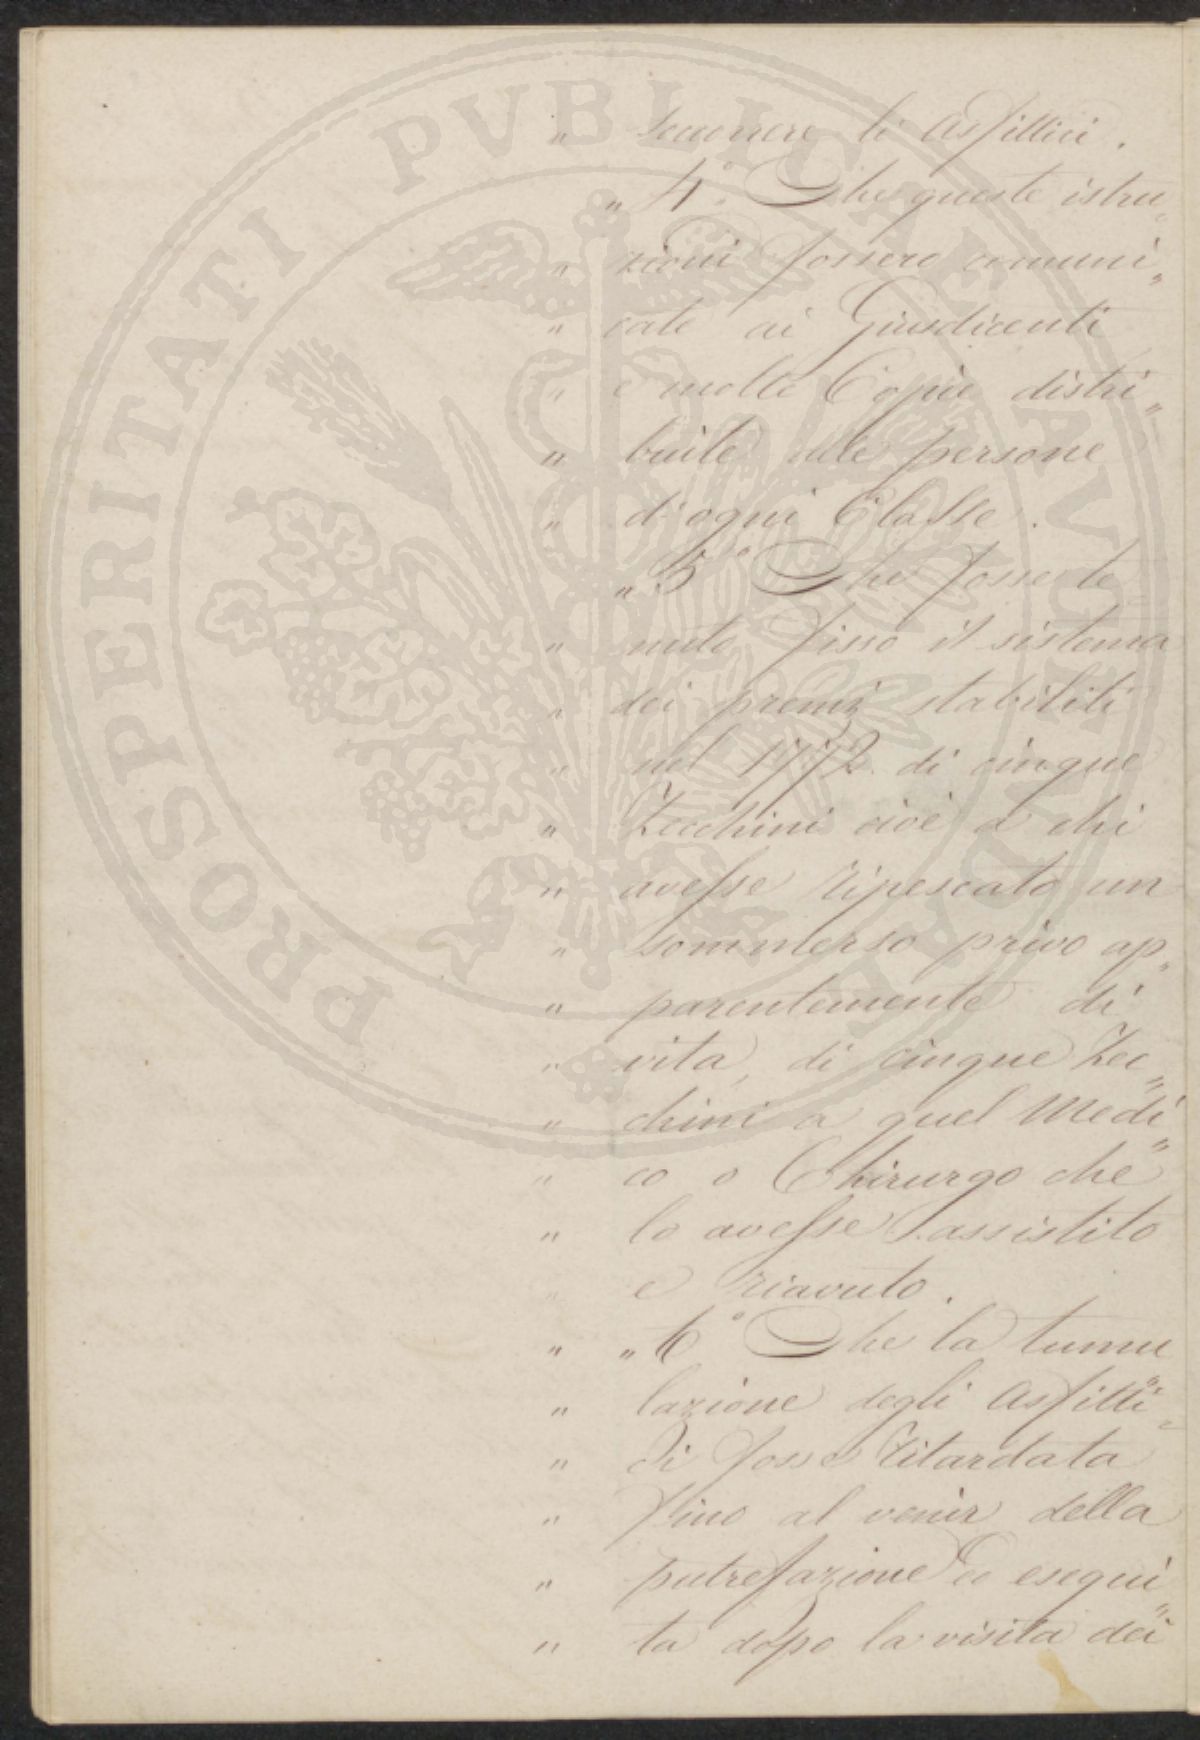 PROSPERITATI PVBLICAE AVGENDAE
" soccorrere li Asfittici.
" 4.° Che queste istru„
" zioni fossero comuni„
" cate ai Giusdicenti
" e molte Copie distri„
" buite alle persone
" d'ogni Classe.
" 5° Che fosse te„
" nuto fisso il sistema
" dei premi stabiliti
" nel 1772. di cinque
" Zecchini cioè a chi
" avesse ripescato un
" sommerso privo ap„
" parentemente di
" vita, di cinque Zec„
" chini a quel Medi„
" co o Chirurgo che
" lo avesse assistito
" e riavuto.
" „6° Che la tumu
" lazione degli Asfitti„
" ci fosse ritardata
" fino al venir della
" putrefazione ed esegui„
" ta dopo la visita dei